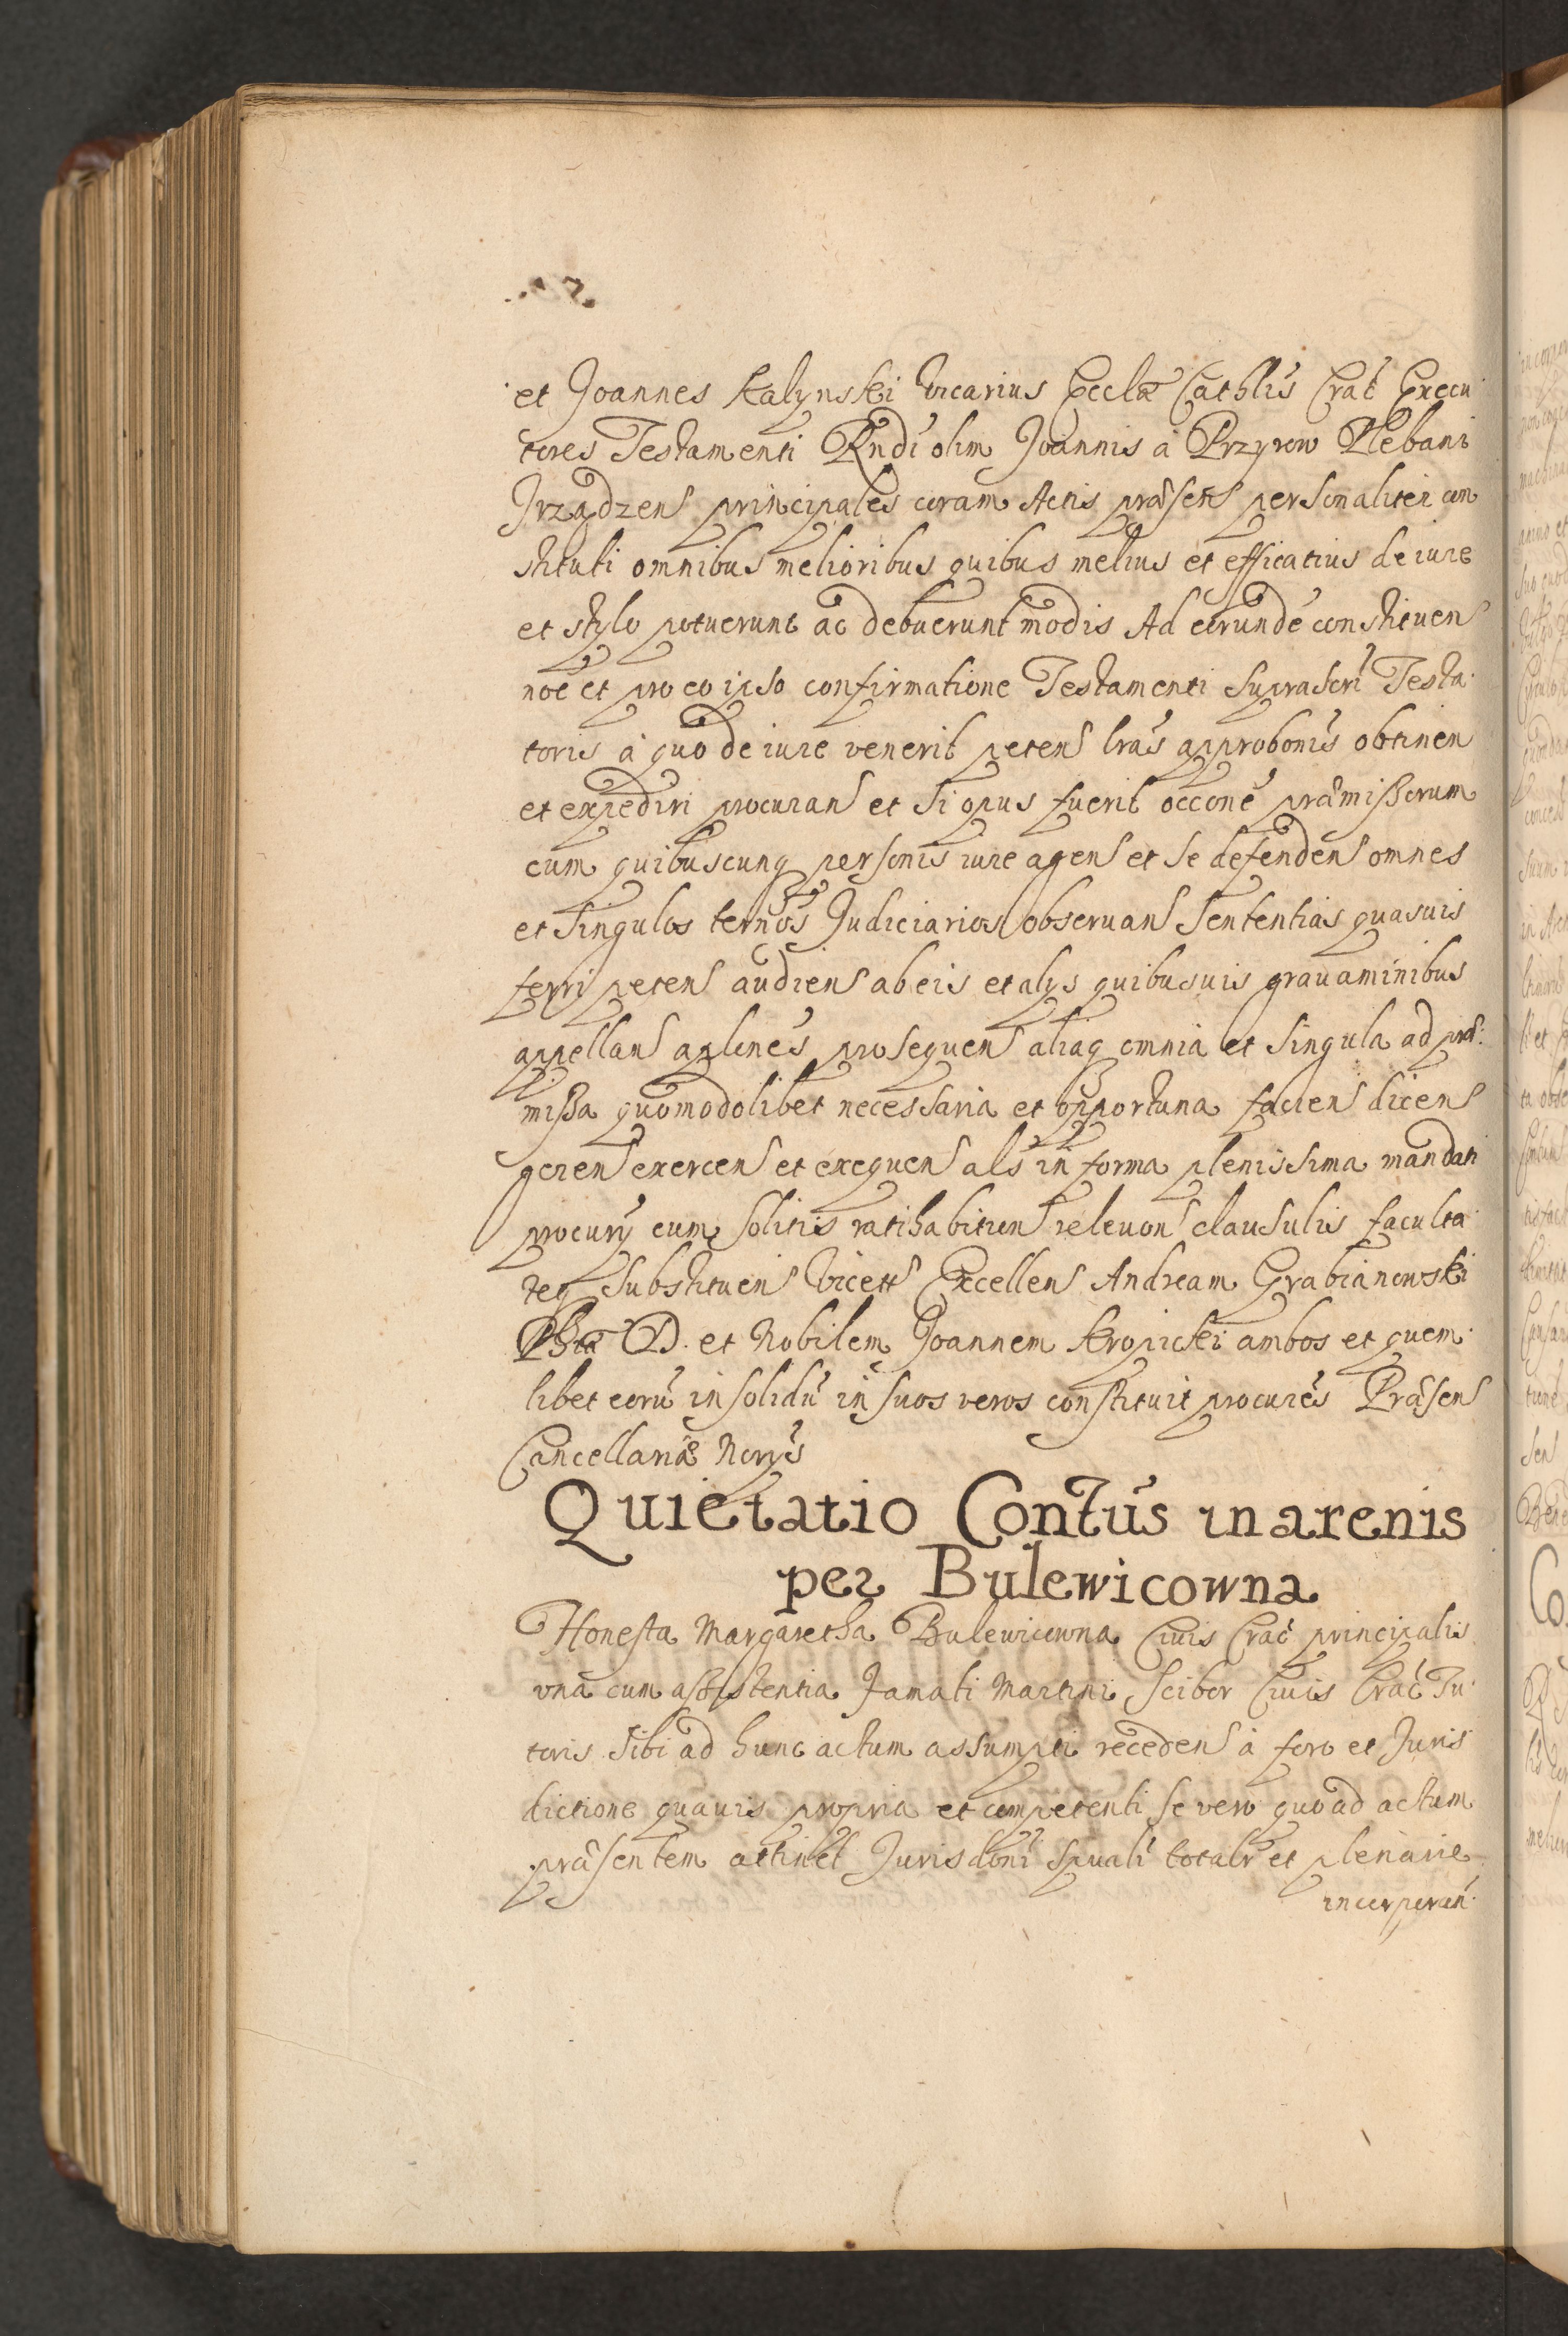 et Joannes Kalynski Vicarius Eccłae Cathłis Crac̃ Execu
tores Testamenti Rndi olim Joannis à Przyrow Plebani
Irządzens principales coram Actis præsens personaliter con
stituti omnibus melioribus quibus melius et efficatius de iure
et stylo potuerunt ac debuerunt modis Ad eorundẽ constituen
noẽ et pro eo ipso confirmatione Testamenti suprascri Testa
toris à quo de iure venerit peten lrãs approbonis obtinen
et expediri procuran et si opus fuerit occonẽ præmissorum
cum quibuscunq personis iure agen et se defenden omnes
et singulos terños Judiciarios observan sententias quasuis
ferri peten audien ab eis et alys quibusuis grauaminibus
appellan aplones prosequen aliaq omnia et singula ad præ:
missa quomodolibet necessaria et opportuna facien dicen
geren exercen et exequen als in forma plenissima mandati
procury cum solitis ratihabition releuon clausulis faculta
teq substituen Excellen Andream Grabianowski
Phiæ D. et Nobilem Joannem Kropicki ambos et quem
libet eorũ in solidũ in suos veros constituit procures Præsen
Cancellariæ Norys
Quietatio Contus in arenis
per Bulewicowna
Honesta Margaretha Bulewicowna Ciuis Crac̃ principalis
vna cum assistentia Famati Martini Scibor Ciuis Crac̃ Tu
toris sibi ad hunc actum assumpti receden à foro et Juris
dictione quauis propria et competenti se vero quo ad actum
præsentem attinet Jurisdoni spuali totalr et plenarie
incorporan